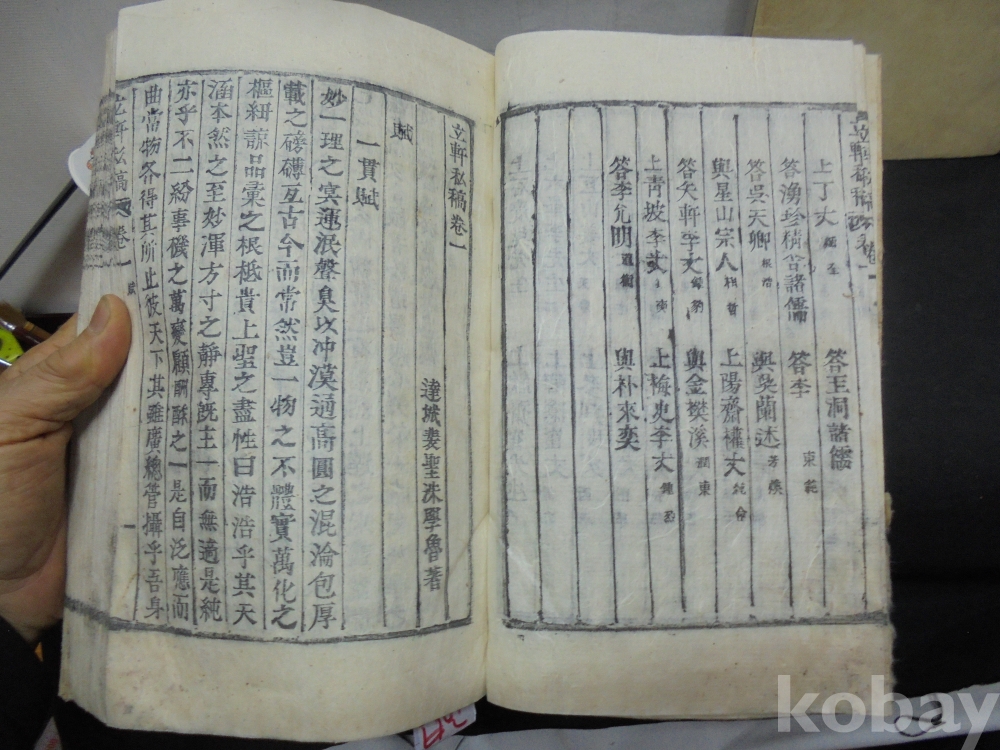 上丁丈
答玉洞諸儒
答湧珍精舍諸儒
答李
東範
答吳天卿
與吳蘭述
與星山宗人
上陽齋權丈
答矢軒李丈
與金樊溪
上靑坡李丈
上梅史李丈
答李允明
與朴來奕
立軒私稿卷一
達城裵聖洙學魯著
賦
一貫賦
妙一理之冥運泯聲臭以冲漠通高圓之混淪包厚
載之磅礴亙古今而常然豈一物之不體實萬化之
樞紐諒品彙之根柢貴上聖之盡性曰浩浩乎其天
涵本然之至妙渾方寸之靜專旣主一而無適是純
亦乎不二紛事磯之萬變顧酬酢之一是自泛應而
曲當物各得其所止彼天下其雖廣總管攝乎吾身
立軒私稿 卷一 賦 一
kobay